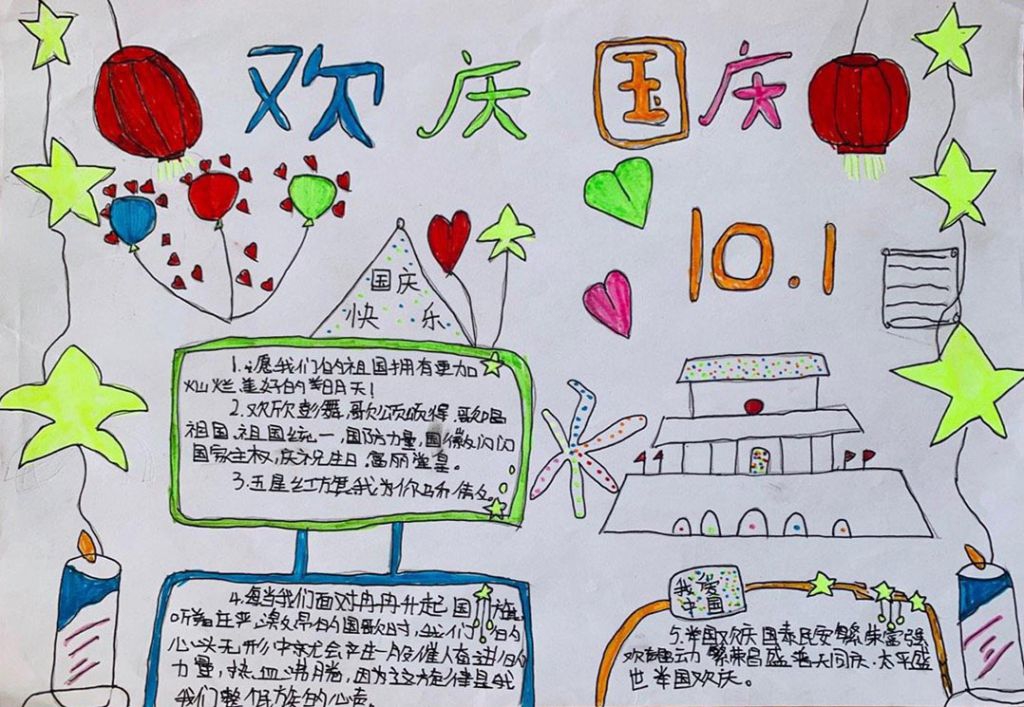 欢庆国庆
10.1
国庆
快乐
1.愿我们的祖国拥有更加
灿烂美好的明天!
2.欢欣彭舞,歌颂硕得,歌唱
祖国,祖国统一,国防力量,国徽闪闪
国家主权,庆祝生日,富丽堂皇。
3.五星红旗我为你
我爱
中国
4.每当我们面对冉冉升起国旗,
听着庄严深的国歌时,我们的
心头无形中就会产生一股催人奋进的
力量,热血沸腾,因为这旋律是我
我们整个民族的心声。
5.举国欢庆 国泰民安 繁荣富强
欢动 繁荣昌盛 普天同庆 太平盛
世 举国欢庆。